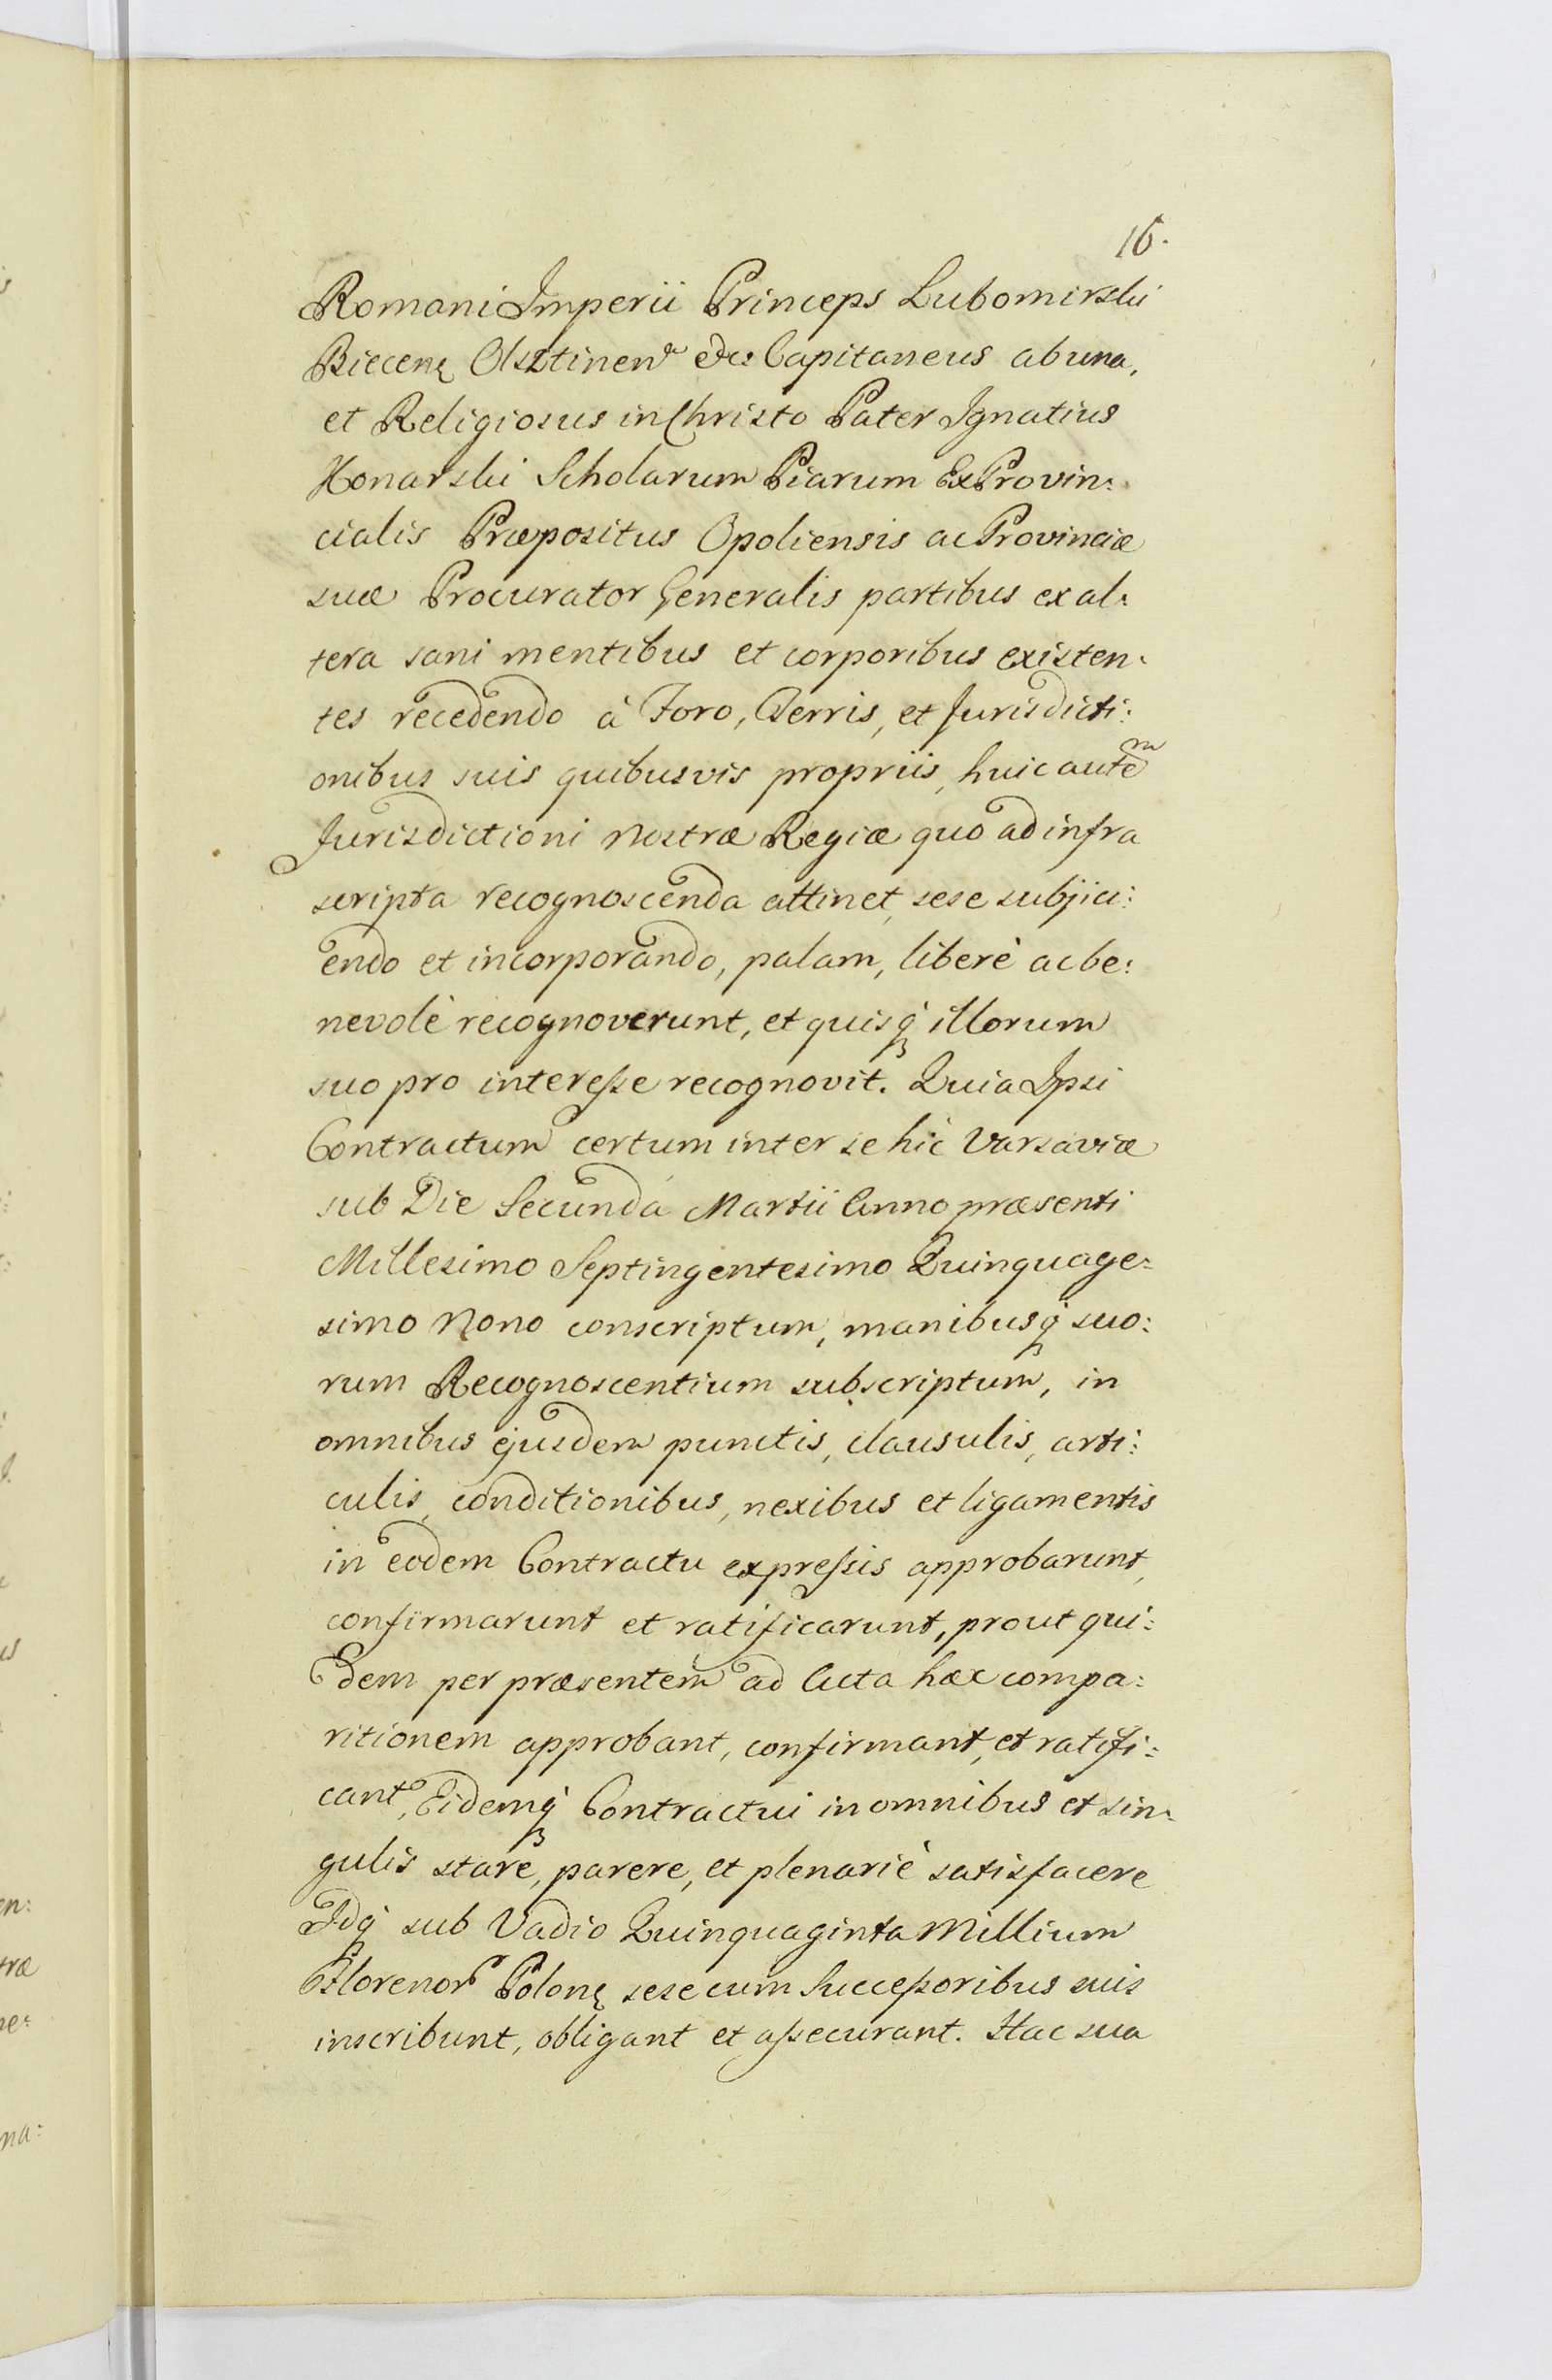 16.
Romani Imperii Princeps Lubomirski
Biecenȩ Olsztinen͠ &c Capitaneus ab una,
et Religiosus in Christo Pater Ignatius
Konarski Scholarum Piarum Ex Provin:
cialis Præpositus Opoliensis ac Provinciæ
suæ Procurator Generalis partibus ex al:
tera sani mentibus et corporibus existen:
tes recedendo à Foro, Terris, et Jurisdicti:
onibus suis quibusvis propriis, huic autem
Jurisdictioni Nostræ Regiæ quo ad infra
scripta recognoscenda attinet, sese subjici:
endo et incorporando, palam, liberè ac be:
nevolè recognoverunt, et quisq; illorum
suo pro interesse recognovit. Quia Ipsi
Contractum certum inter se hic Varsaviæ
sub Die Secunda Martii Anno præsenti
Millesimo Septingentesimo Quinquage:
simo Nono conscriptum, manibusq; suo:
rum Recognoscentium subscriptum, in
omnibus ejusdem punctis, clausulis, arti:
culis, conditionibus, nexibus et ligamentis
in eodem Contractu expressis approbarunt,
confirmarunt et ratificarunt, prout qui:
dem per præsentem ad Acta hæc compa:
ritionem approbant, confirmant, et ratifi:
cant, Eidemq; Contractui in omnibus et sin:
gulis stare, parere, et plenariè satisfacere
Idq; sub Vadio Quinquaginta Millium
Florenor Polonȩ sese cum Successoribus suis
inscribunt, obligant et assecurant. Hac sua